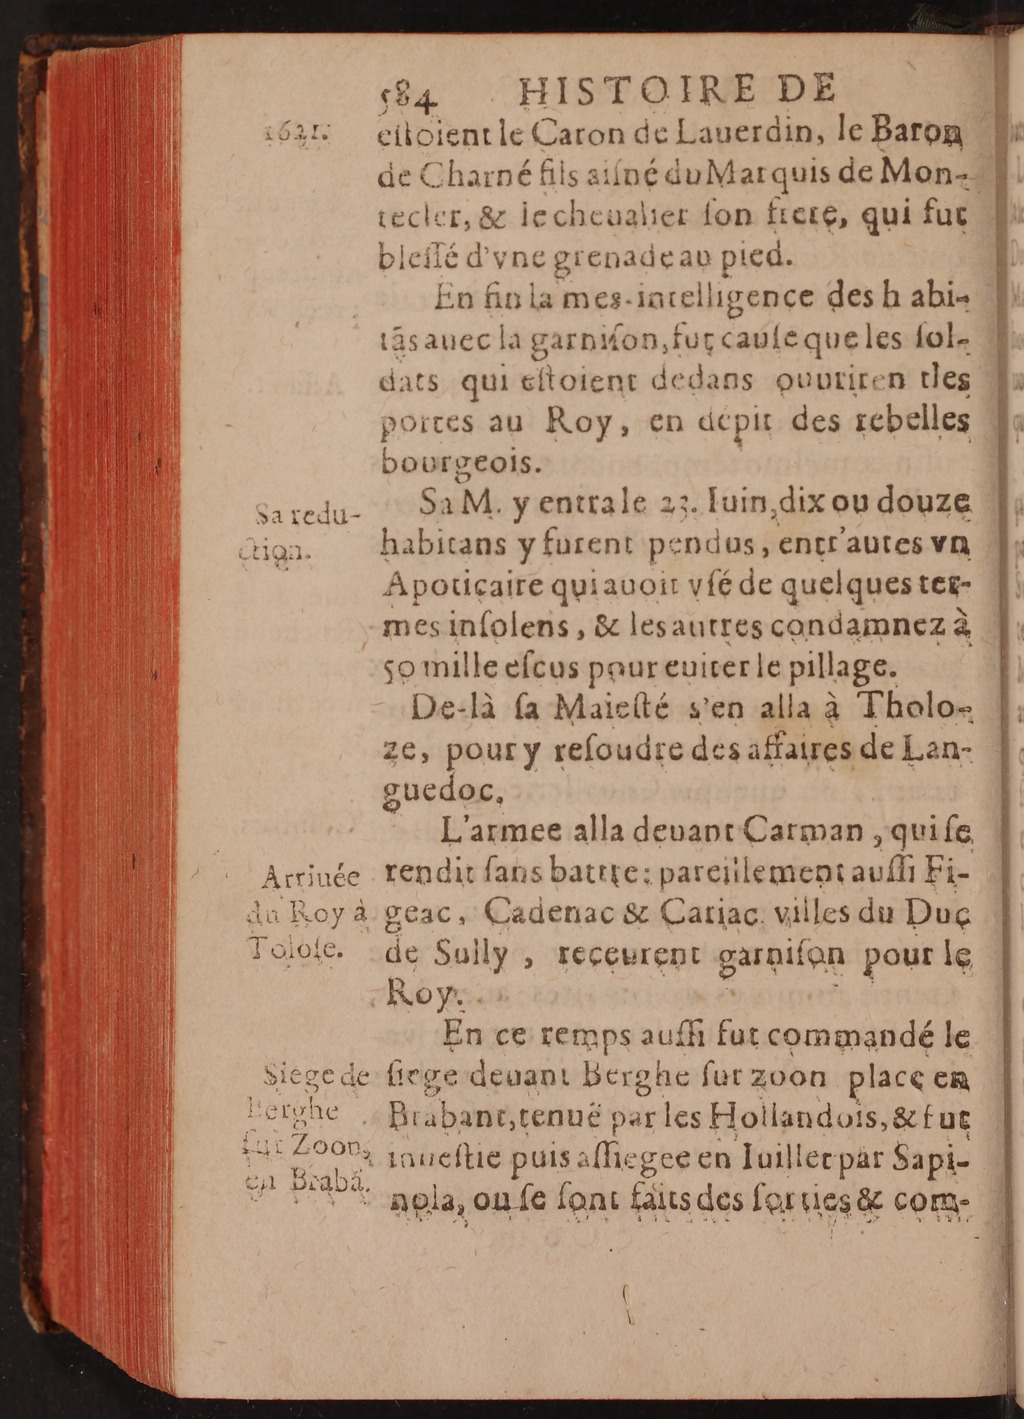 584 HISTOIRE DE
1621.
estoient le Caron de Lauerdin, le Baron
de Charné fils aisné du Marquis de Mon-
tecler, & le cheualier son frere, qui fut
blessé d'vne grenade au pied.
En fin la mes-intelligence des h abi-
tãs auec la garnison, fut cause que les sol-
dats qui estoient dedans ouuriren tles
portes au Roy, en depit des rebelles
bourgeois.
Sa redu-
ction.
Sa M. y entra le 23. Iuin, dix ou douze
habitans y furent pendus, entr'autes vn
Apoticaire qui auoit vsé de quelques ter-
mes insolens, & les autres condamnez à
50 mille escus pour euiter le pillage.
De-là sa Maiesté s'en alla à Tholo-
ze, pour y resoudre des affaires de Lan-
guedoc,
L'armee alla deuant Carman, qui se
Arriuée
du Roy à
Tolose.
rendit sans battre: pareillement aussi Fi-
geac, Cadenac & Cariac. villes du Duc
de Sully, receurent garnison pour le
Roy.
En ce temps aussi fut commandé le
Siege de
Berghe
sur Zoon,
en Brabã.
siege deuant Berghe sur zoon place en
Brabant, tenuë par les Hollandois, & fut
inuestie puis assiegee en Iuillet par Sapi-
nola, ou se sont faits des sorties & com-